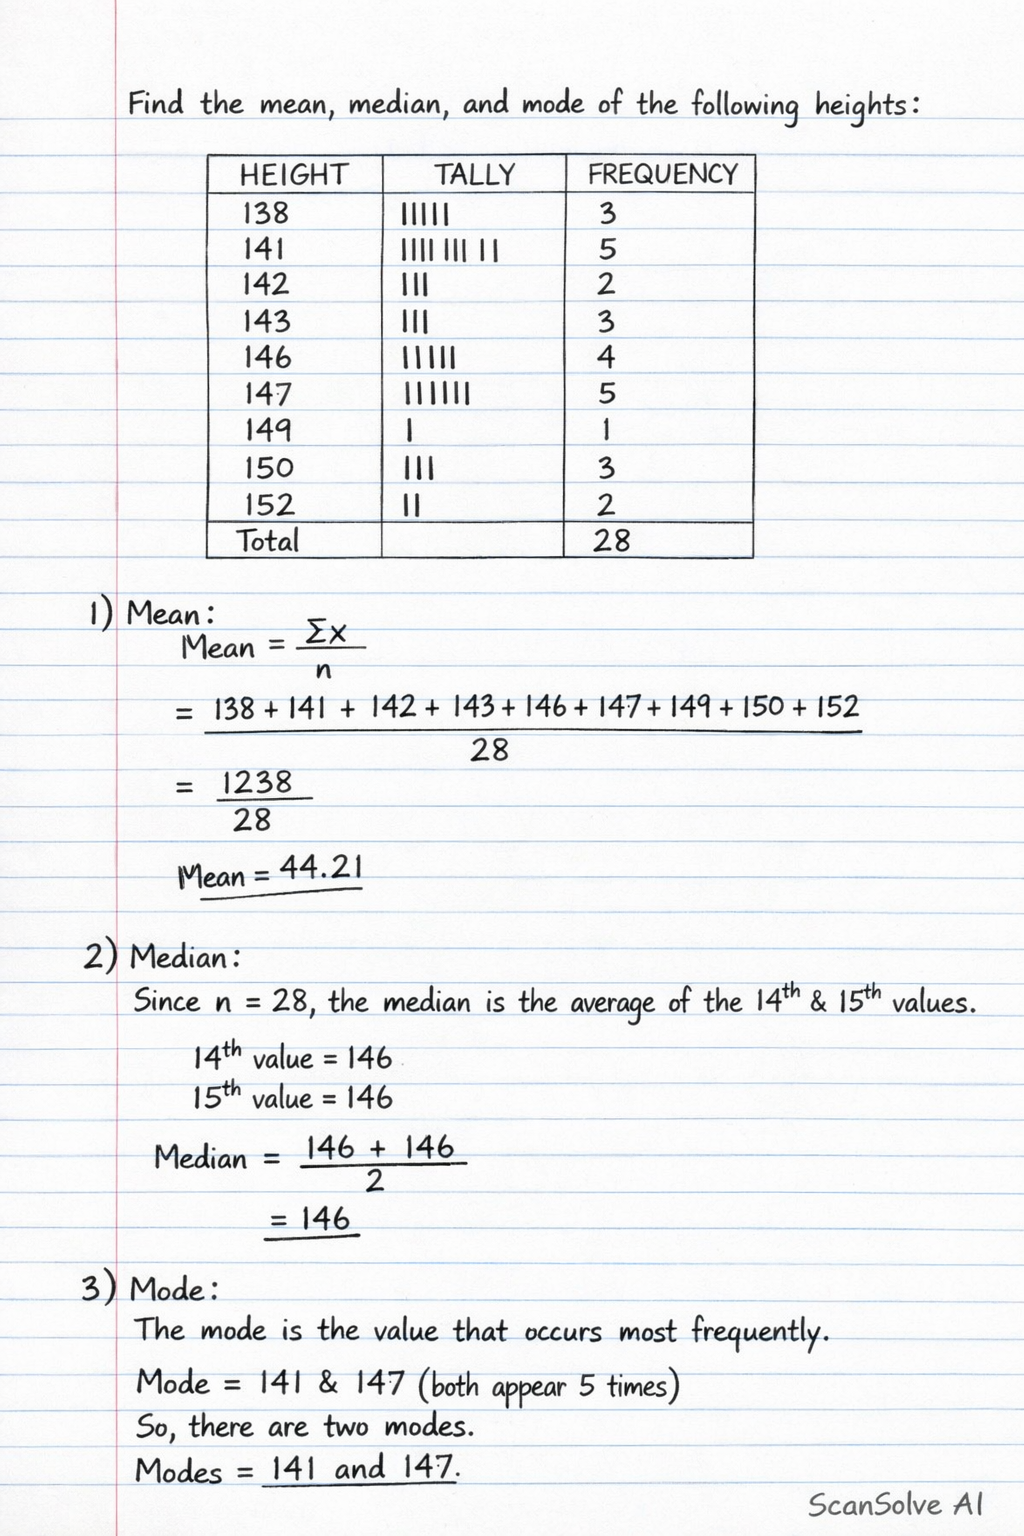 Find the mean, median, and mode of the following heights:
HEIGHT TALLY FREQUENCY
138 ||||| 3
141 |||| ||| || 5
142 ||| 2
143 ||| 3
146 ||||| 4
147 |||||| 5
149 | 1
150 ||| 3
152 || 2
Total 28
1) Mean:
Mean = Σx
n
= 138 + 141 + 142 + 143 + 146 + 147 + 149 + 150 + 152
28
= 1238
28
Mean = 44.21
2) Median:
Since n = 28, the median is the average of the 14th & 15th values.
14th value = 146
15th value = 146
Median = 146 + 146
2
= 146
3) Mode:
The mode is the value that occurs most frequently.
Mode = 141 & 147 (both appear 5 times)
So, there are two modes.
Modes = 141 and 147.
ScanSolve AI